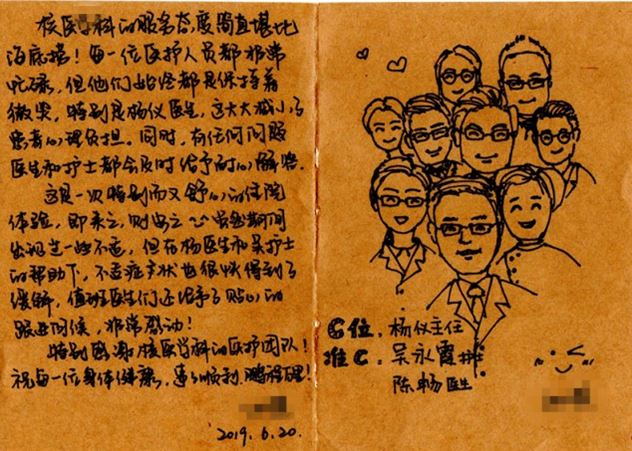 核医学科的服务态度简直堪比
海底捞！每一位医护人员都非常
忙碌，但他们始终都是保持着
微笑，特别是杨仪医生，这大大减小了
患者心理负担。同时，有任何问题
医生和护士都会及时给予耐心解答。
这是一次特别而又舒心的住院
体验，即来之，则安之~~虽然期间
出现过一些不适，但在杨医生和吴护士
的帮助下，不适症状也很快得到了
缓解，值班医生们还给予了贴心的
跟进问候，非常感动！
特别感谢核医学科的医护团队！
祝每一位身体健康，事事顺利，鹏程理！
2019.6.20.
C位，杨仪主任
准C．吴永霞护士
陈畅医生